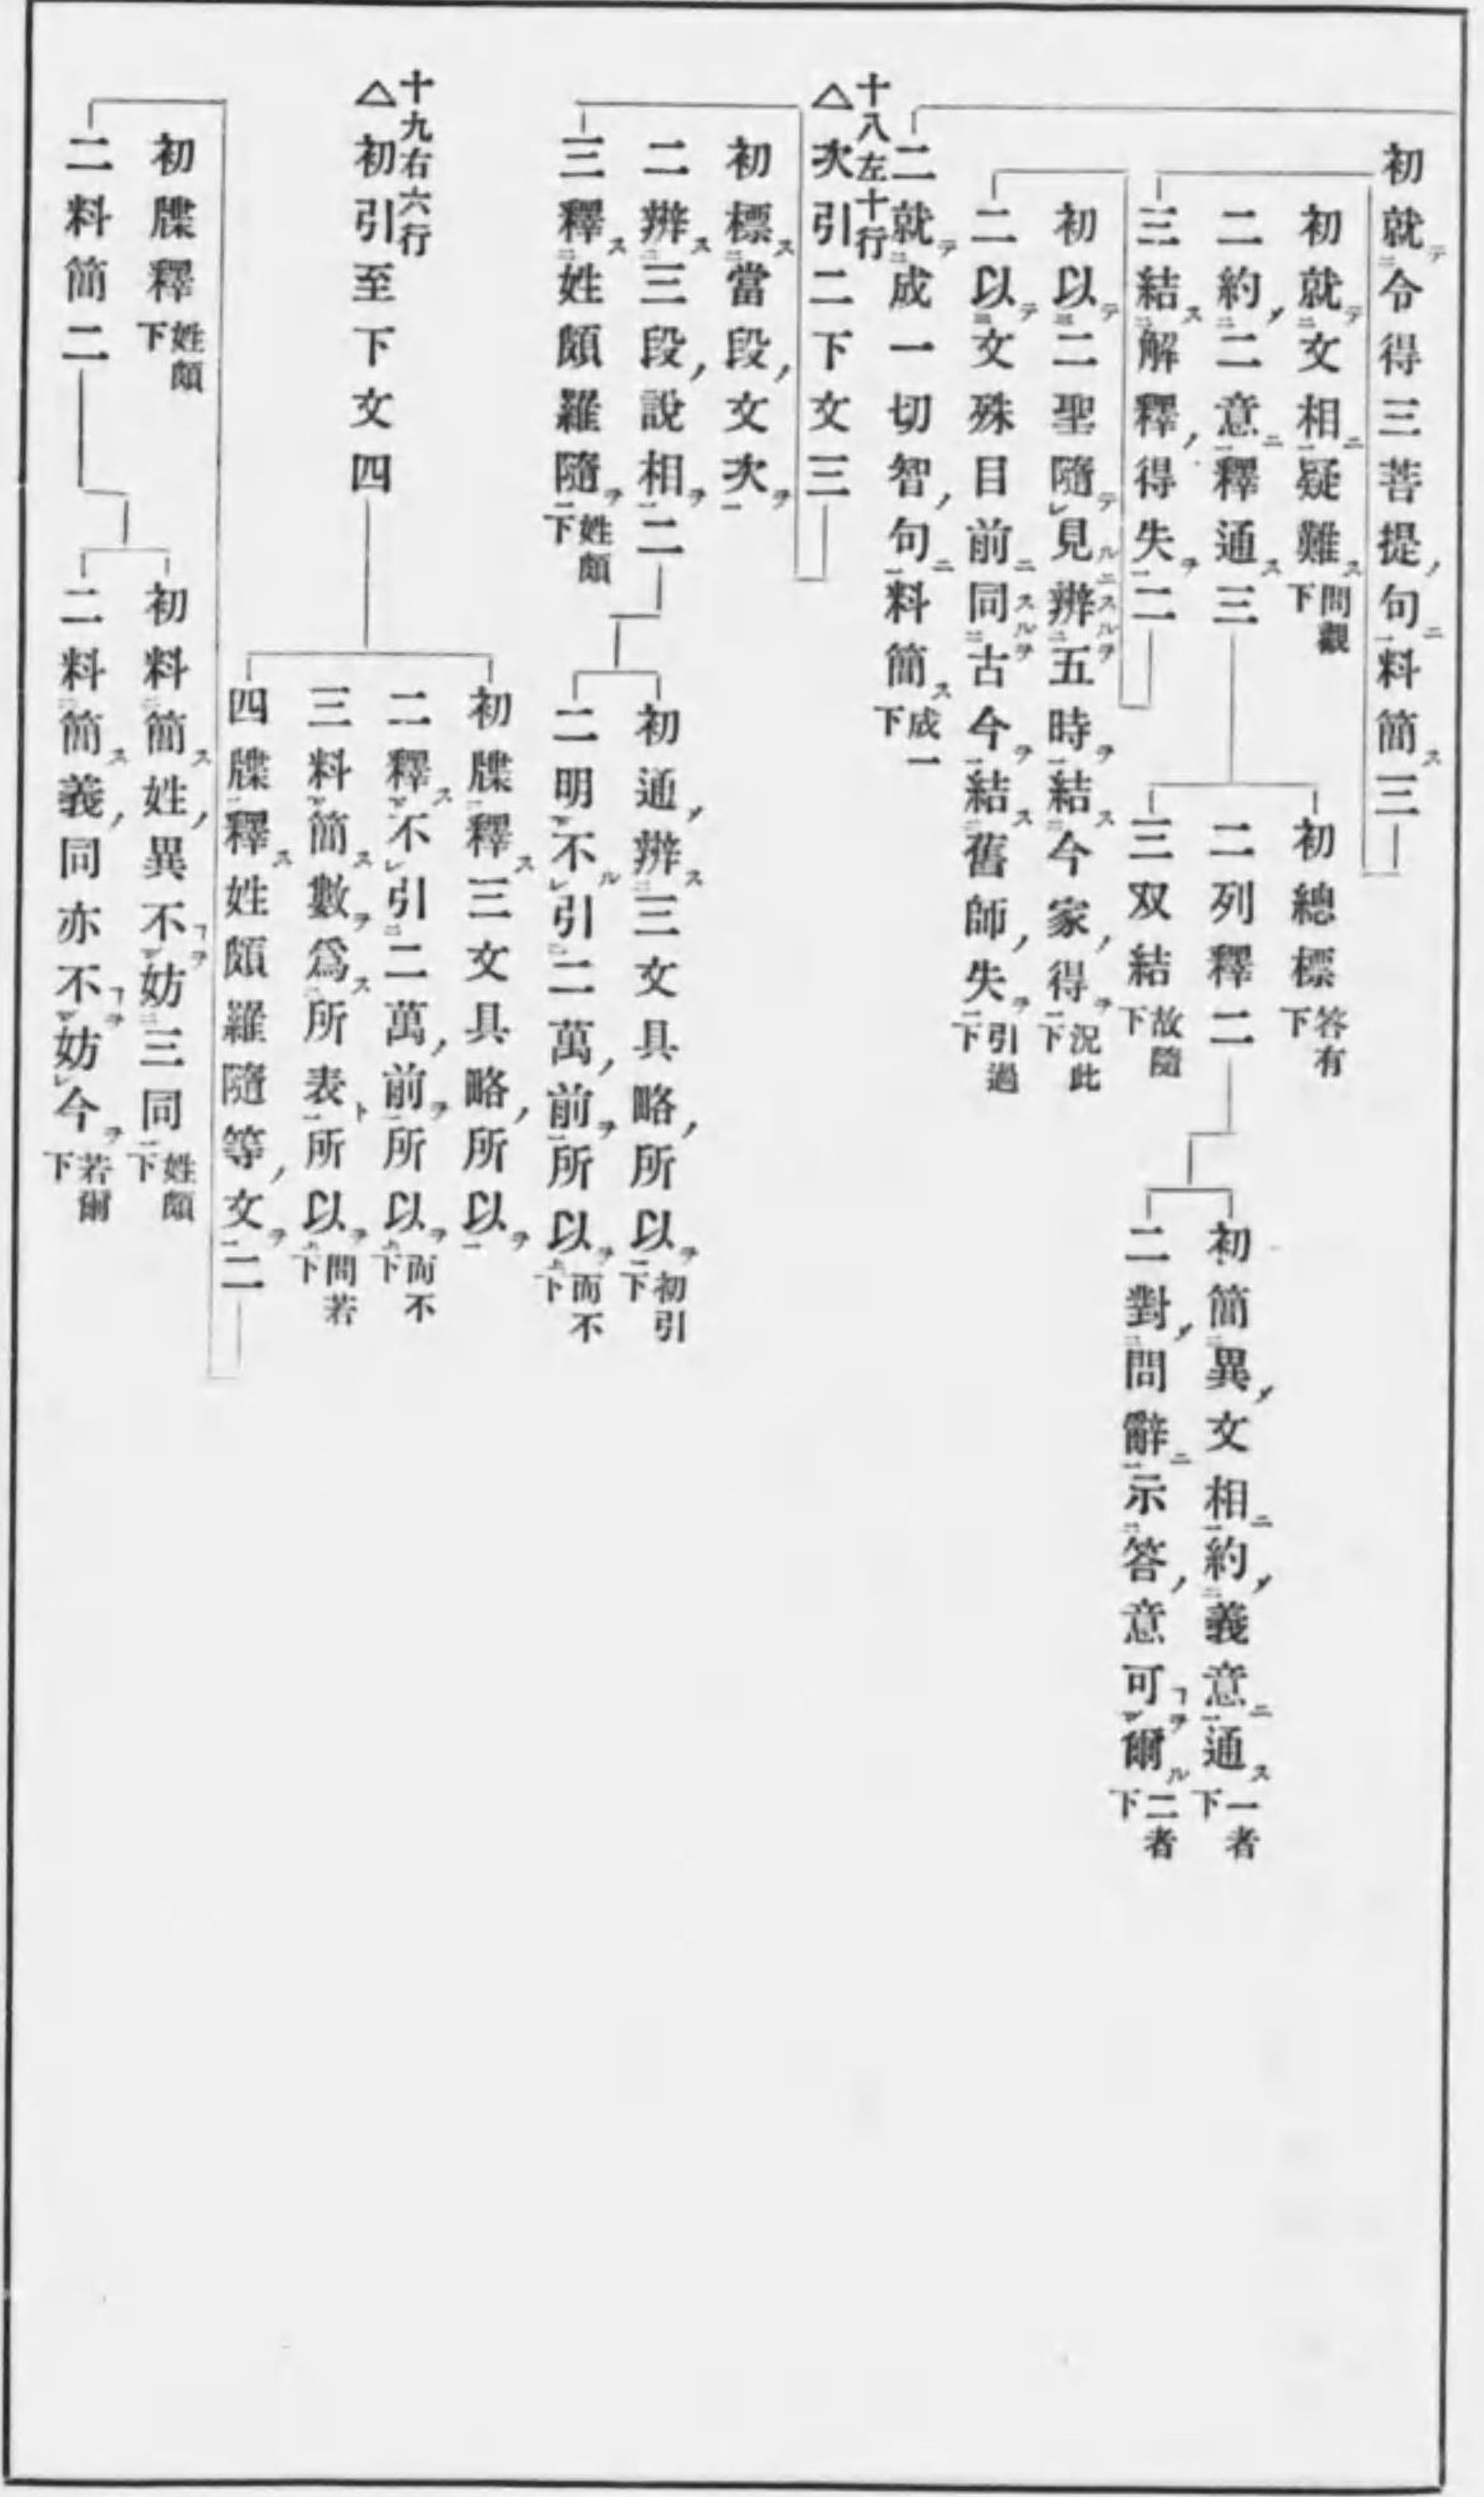 初就令得三菩提句料簡三
初就文相疑難 問觀下
二約二意釋通三
初總標 答有下
二列釋二
初簡異文相約義意通 一者下
二對問辭示答意可爾 二者下
三双結 故隨下
三結解釋得失二
初以二聖隨見辨五時結今家得 況此下
二以文殊目前同古今結舊師失 引過下
二就成一切智句料簡 成一下
十八左十行
△次引二下文三
初標當段文次
二辨三段說相二
初通辨三文具略所以 初引下
二明不引二萬前所以 而不下
三釋姓頗羅隨 姓頗下
十九右六行
△初引至下文四
初牒釋三文具略所以
二釋不引二萬前所以 而不下
三料簡數爲所表所以 問若下
四牒釋姓頗羅隨等文二
初牒釋 姓頗下
二料簡二
初料簡姓異不妨三同 姓頗下
二料簡義同亦不妨今 若爾下